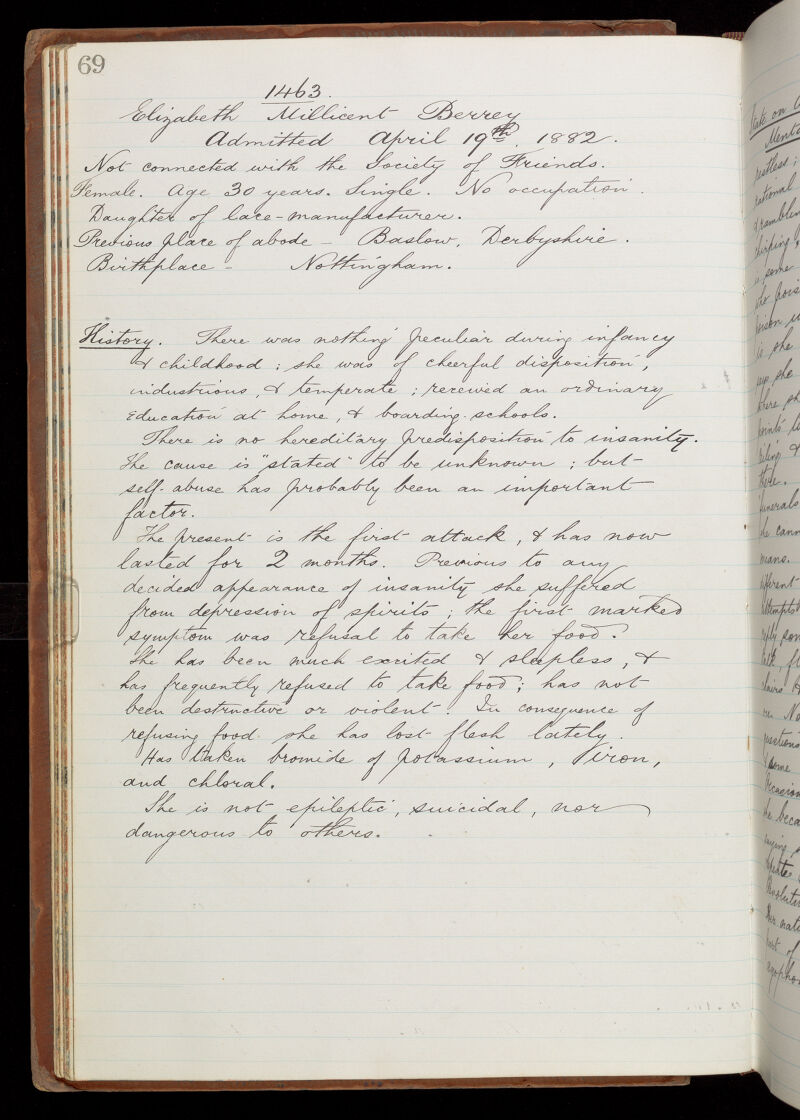 69
1463.
Elizabeth Millicent Berrey
Admitted April 19th. 1882.
Not connected with the Society of Friends.
Female. Age 30 years. Single. No occupation.
Daughter of lace-manufacturer.
Previous place of abode - Baslow, Derbyshire.
Birthplace - Nottingham.
History. There was nothing peculiar during infancy
& childhood; she was of cheerful disposition,
industrious, & temperate; received an ordinary
education at home, & boarding-schools.
There is no hereditary predisposition to insanity.
The cause is "stated" to be unknown; but
self-abuse has probably been an important
factor.
The present is the first attack, & has now
lasted for 2 months. Previous to any
decided appearance of insanity she suffered
from depression of spirits; the first marked
symptom was refusal to take her food.
She has been much excited & sleepless, &
has frequently refused to take food; has not
been destructive or violent. In consequence of
refusing food she has lost flesh lately.
Has taken bromide of potassium, iron,
and chloral.
She is not epileptic, suicidal, nor
dangerous to others.
State on
restless;
rational
chirping,
some
who
is she
she
where
points
there.
funerals
he
means.
different
attempts
questions
some
he
saying